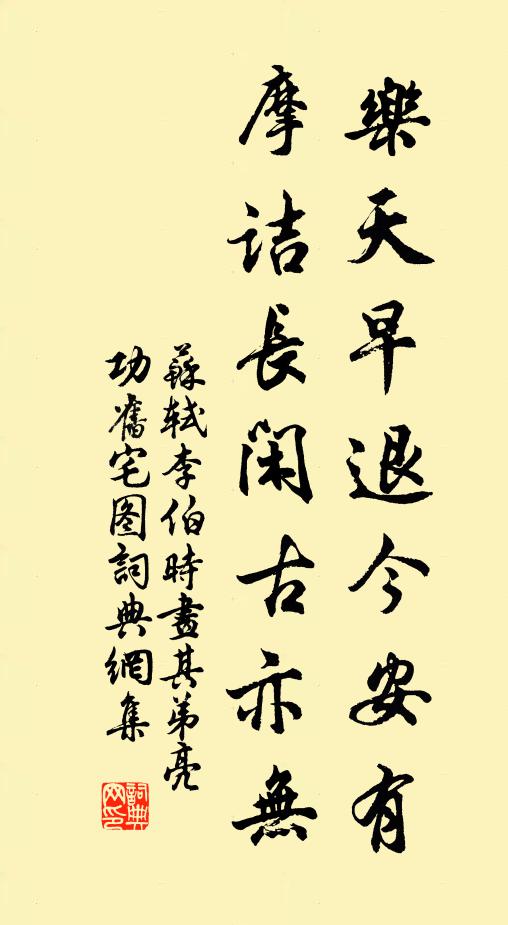 樂天早退今安有
摩詰長閑古亦無
蘇軾李伯時畫其弟亮
功舊宅图詞典網集
詞典
网印